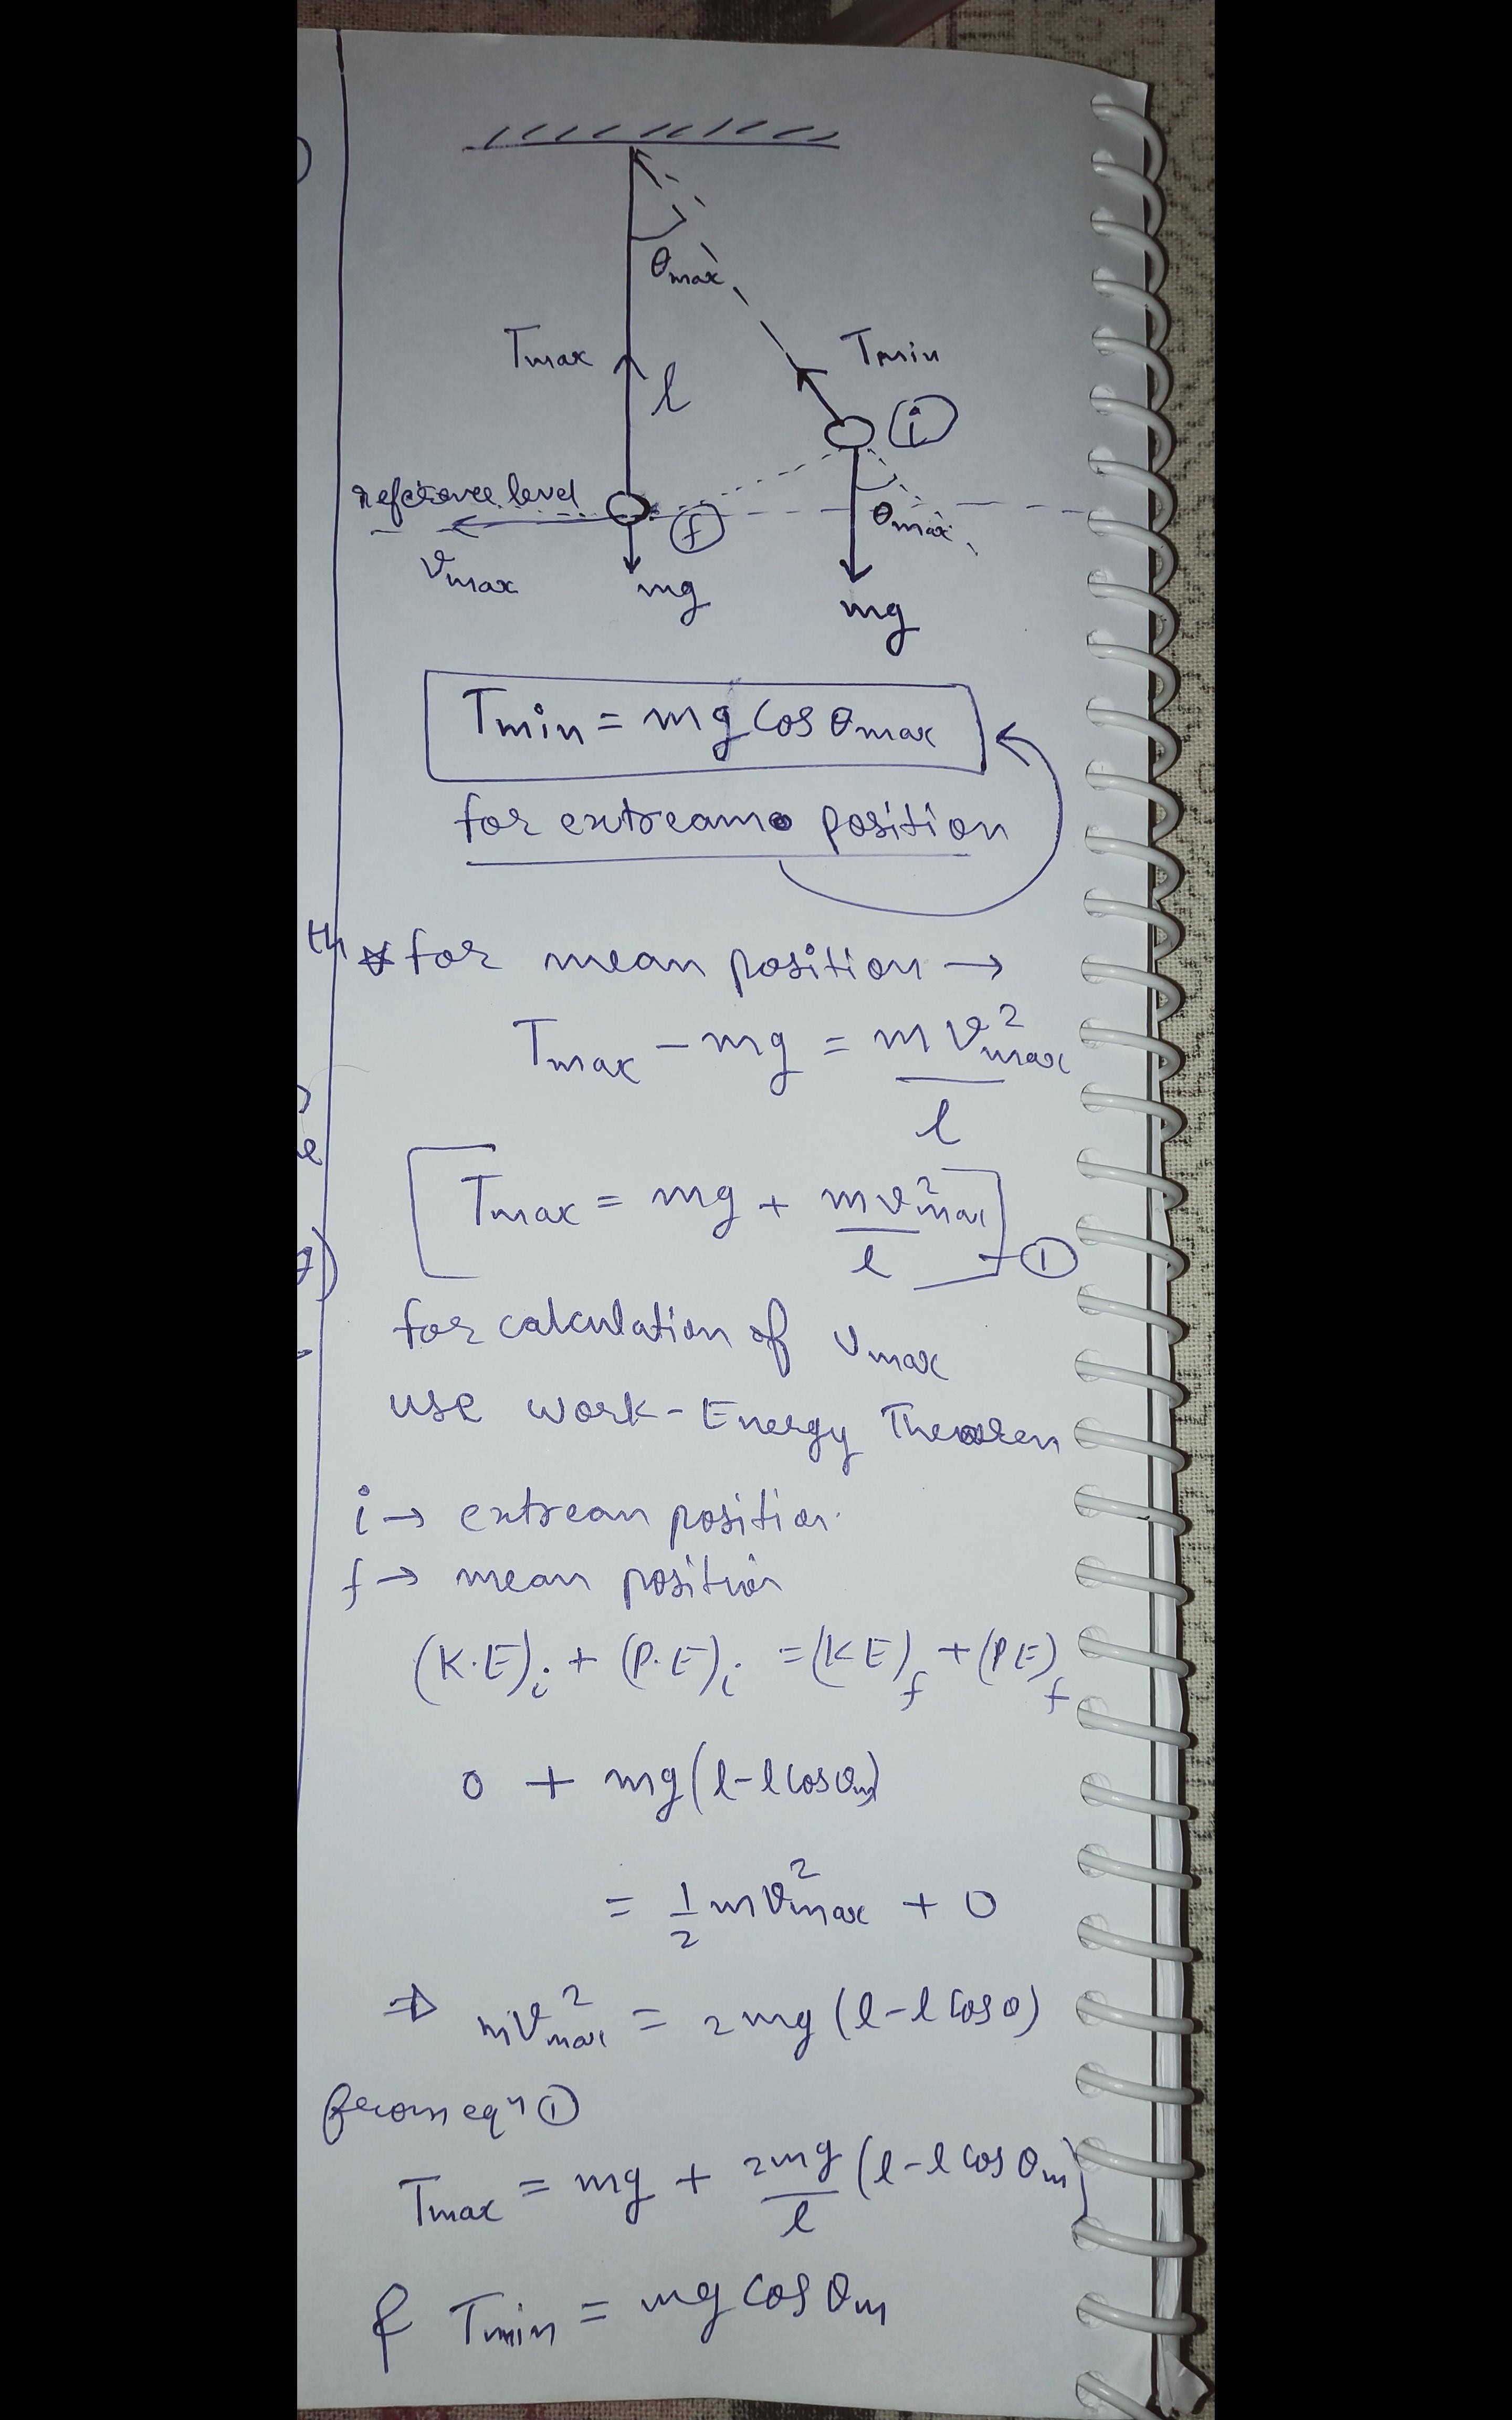 θmax
Tmax
Tmin
l
i
reference level
f
θmax
vmax
mg
mg
Tmin = mg cos θmax
for extreame position
for mean position →
Tmax - mg = mv²max / l
Tmax = mg + mv²max / l - ①
for calculation of vmax
use work-Energy Theoren
i → extrean position
f → mean position
(K.E)i + (P.E)i = (KE)f + (PE)f
0 + mg(l - l cos θm)
= 1/2 mv²max + 0
⇒ mv²max = 2mg (l - l cos θ)
from eqⁿ ①
Tmax = mg + 2mg/l (l - l cos θm)
& Tmin = mg cos θm